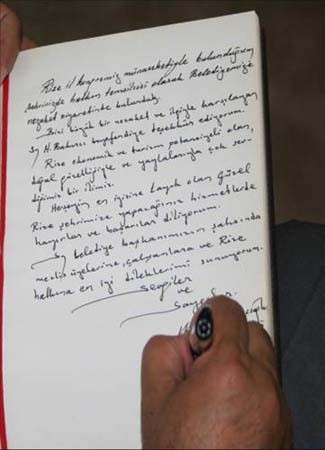 Rize İl kongremiz münasebetiyle bulunduğum
şehrinizde halkın temsilcisi olarak Belediyemize
nezaket ziyaretinde bulunduk.
Bizi büyük bir nezaket ve ilgiyle karşılayan
Sn H. Bakırcı beyefendiye teşekkür ediyorum.
Rize ekonomik ve turizm potansiyeli olan,
doğal güzelliğiyle ve yaylalarıyla çok sev-
diğimiz bir ilimiz.
Herşeyin en iyisine layık olan güzel
Rize şehrimize yapacağınız hizmetlerde
hayırlar ve başarılar diliyorum.
Sn belediye başkanımızın şahsında
meclis üyelerine, çalışanlara ve Rize
halkına en iyi dileklerimi sunuyorum.
Sevgiler
ve
Saygılar.